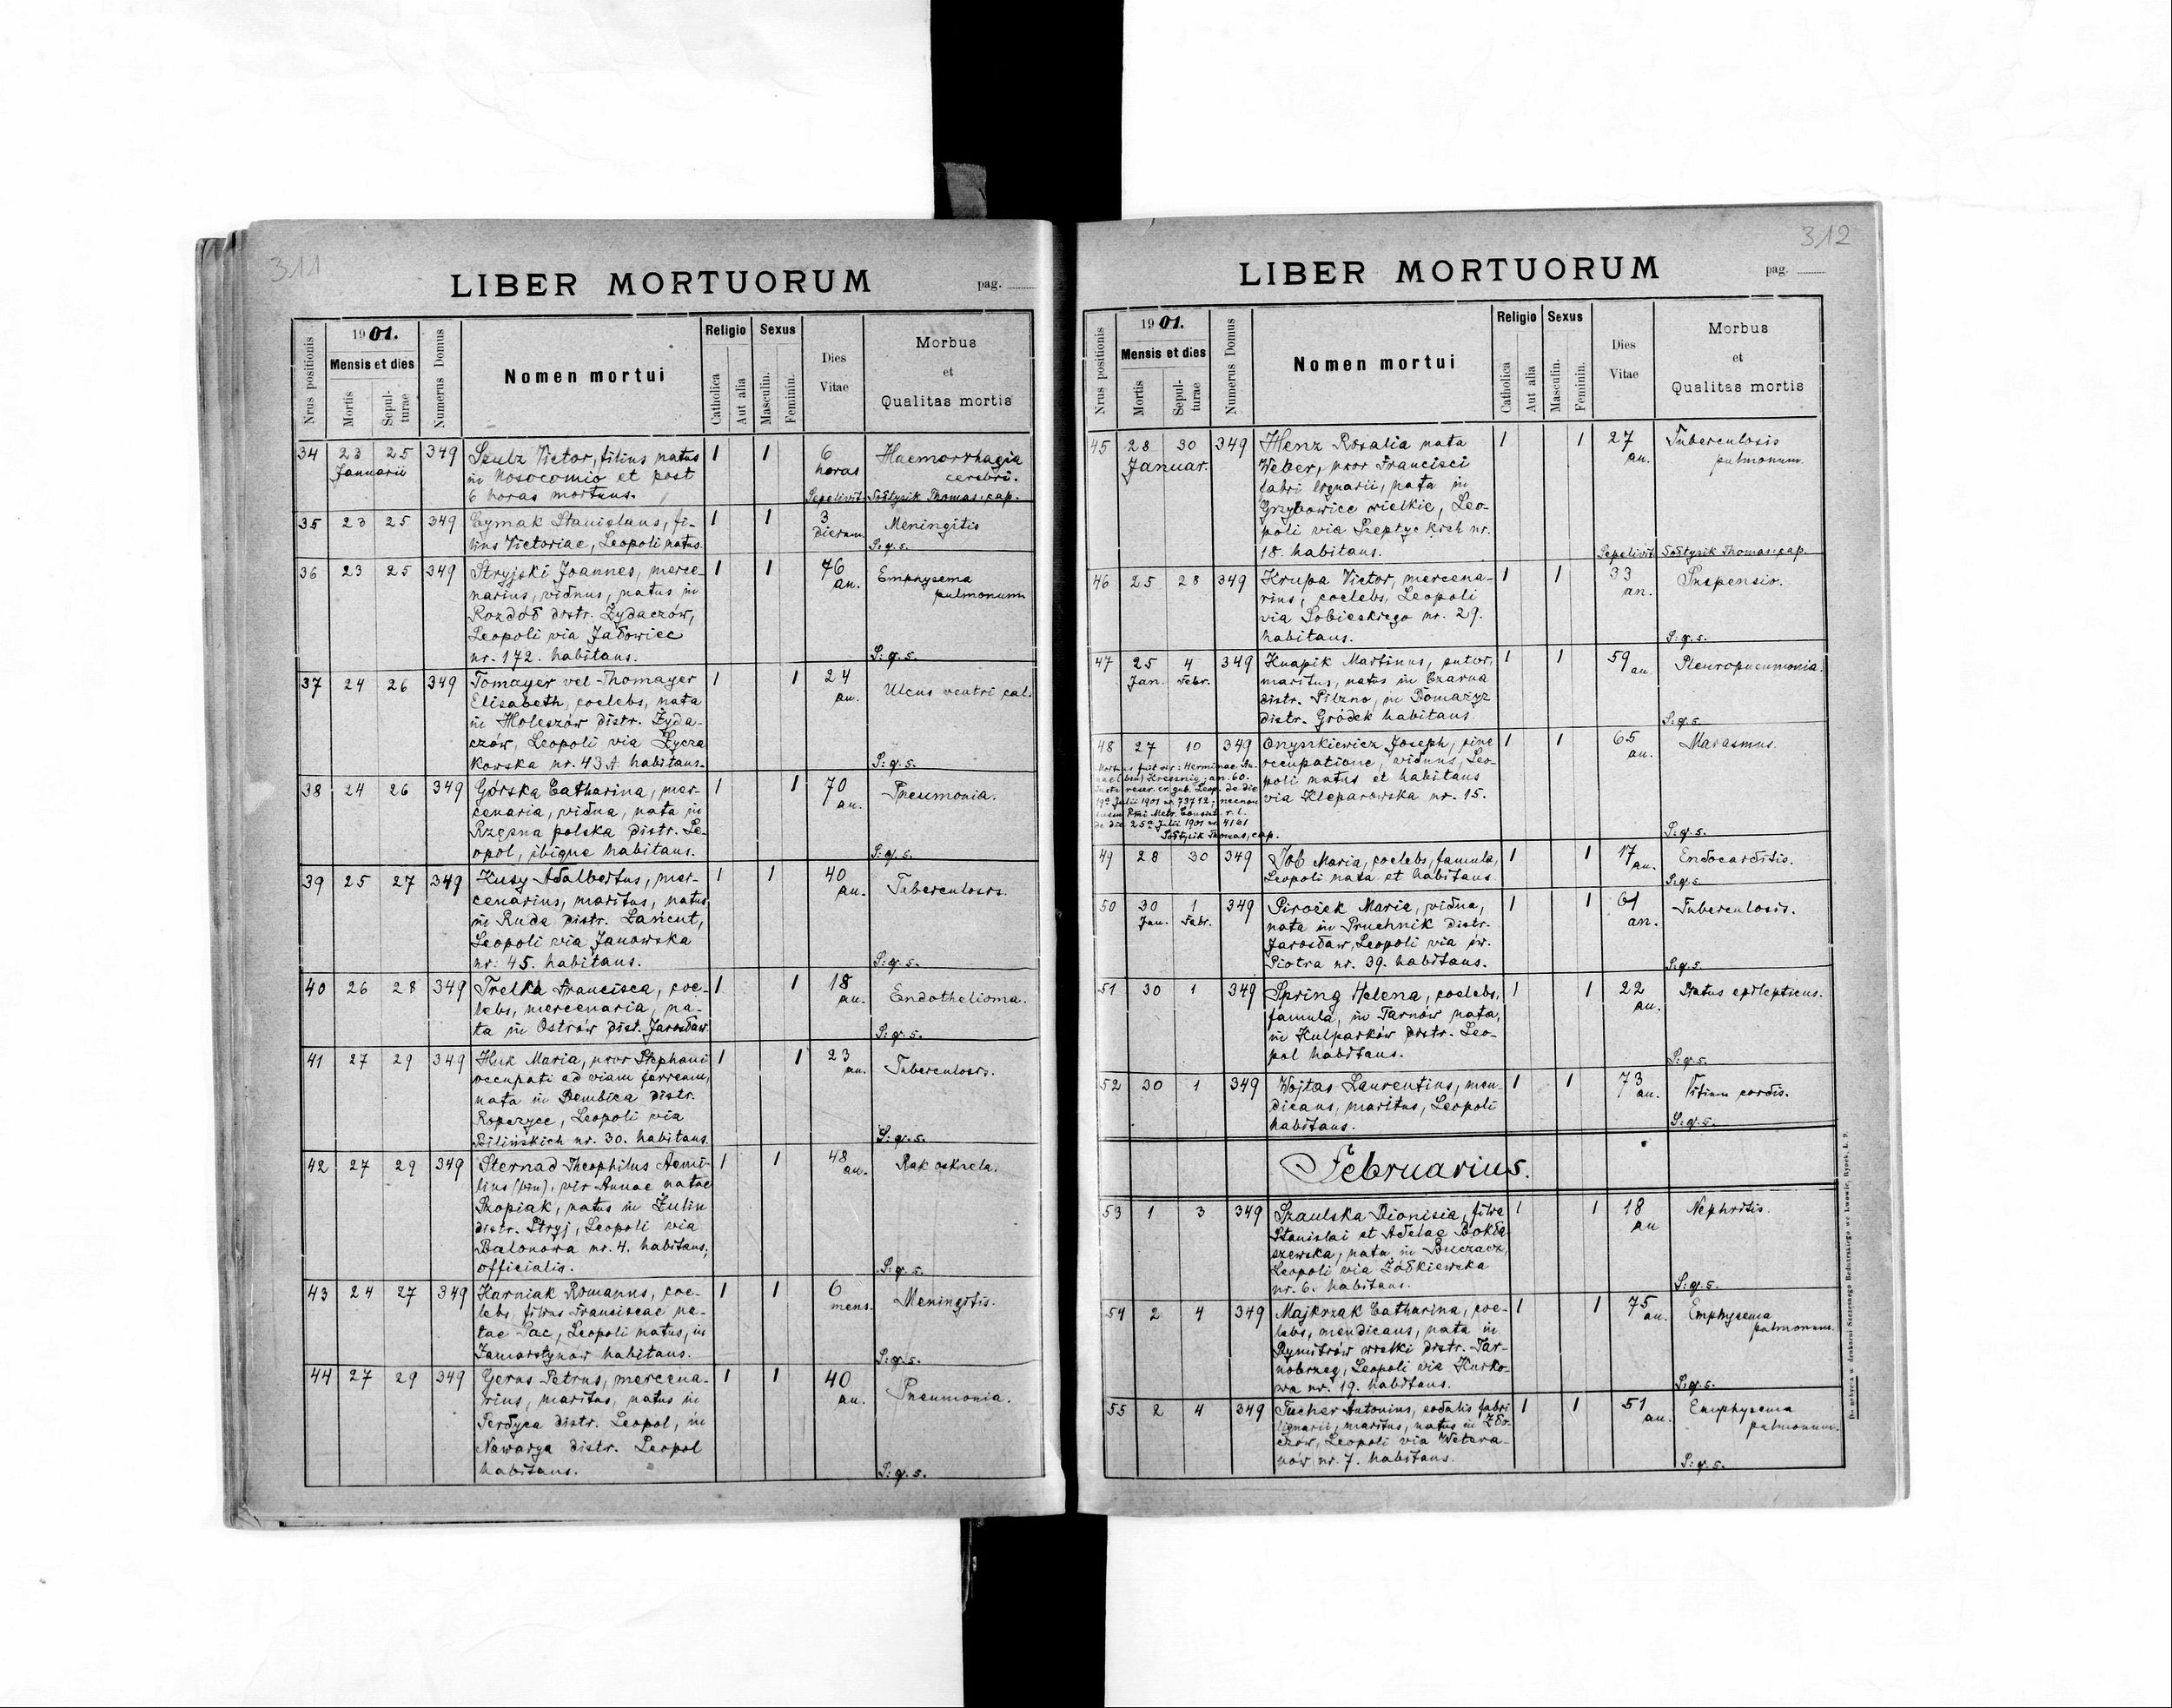 311
LIBER MORTUORUM
pag.
Nrus positionis
1901.
Mensis et dies
Mortis
Sepul-
turae
Numerus Domus
Nomen mortui
Religio
Catholica
Aut alia
Sexus
Masculin.
Feminin.
Dies
Vitae
Morbus
et
Qualitas mortis
34 23 25 349 Szulz Victor, filius natus 1 1 6 Haemorrhagia
Januarii in nosocomio et post horas cerebri.
6 horas mortuus. Sepelivit Sołtysik Thomas, cap.
35 23 25 349 Cymak Stanislaus, fi- 1 1 3 Meningitis
lius Victoriae, Leopoli natus. dierum S. q. s.
36 23 25 349 Stryjski Joannes, merce- 1 1 76 Emphysema
narius, viduus, natus in an. pulmonum
Rozdół distr. Żydaczów,
Leopoli via Jałowiec
nr. 172. habitans. S. q. s.
37 24 26 349 Tomayer vel Thomayer 1 1 24 Ulcus ventri cal.
Elisabeth, coelebs, nata an.
in Holeszów distr. Żyda-
czów, Leopoli via Łycza
kowska nr. 43 A. habitans. S. q. s.
38 24 26 349 Górska Catharina, mer- 1 1 70 Pneumonia.
cenaria, vidua, nata in an.
Rzęsna polska distr. Le-
opol, ibique habitans. S. q. s.
39 25 27 349 Kusy Adalbertus, mer- 1 1 40 Tuberculosis.
cenarius, maritus, natus an.
in Ruda distr. Łańcut,
Leopoli via Janowska
nr. 45. habitans. S. q. s.
40 26 28 349 Trelka Francisca, coe- 1 1 18 Endothelioma.
lebs, mercenaria, na- an.
ta in Ostrów dist. Jarosław. S. q. s.
41 27 29 349 Huk Maria, uxor Stephani 1 1 23 Tuberculosis.
occupati ad viam ferream, an.
nata in Dembica distr.
Ropczyce, Leopoli via
Bilińskich nr. 30. habitans. S. q. s.
42 27 29 349 Sternad Theophilus Aemi- 1 1 48 Rak oskrzela.
lius (bin), vir Annae natae an.
Szopiak, natus in Zulin
distr. Stryj, Leopoli via
Balonowa nr. 4. habitans,
officialis. S. q. s.
43 24 27 349 Harniak Romanus, coe- 1 1 6 Meningitis.
lebs, filius Franciscae na- mens.
tae Pac, Leopoli natus, in
Zamarstynow habitans. S. q. s.
44 27 29 349 Geras Petrus, mercena- 1 1 40 Pneumonia.
rius, maritus, natus in an.
Terdyca distr. Leopol, in
Nawarya distr. Leopol
habitans. S. q. s.
312
LIBER MORTUORUM
pag.
Nrus positionis
1901.
Mensis et dies
Mortis
Sepul-
turae
Numerus Domus
Nomen mortui
Religio
Catholica
Aut alia
Sexus
Masculin.
Feminin.
Dies
Vitae
Morbus
et
Qualitas mortis
45 28 30 349 Henz Rosalia nata 1 1 27 Tuberculosis
Januar. Weber, uxor Francisci an. pulmonum.
fabri lignarii, nata in
Grzybowice wielkie, Leo-
poli via Szeptyckich nr.
18. habitans. Sepelivit Sołtysik Thomas, cap.
46 25 28 349 Krupa Victor, mercena- 1 1 33 Suspensio.
rius, coelebs, Leopoli an.
via Sobieskiego nr. 29.
habitans. S. q. s.
47 25 4 349 Knapik Martinus, sutor, 1 1 59 Pleuropneumonia.
Jan. Febr. maritus, natus in Czarna an.
distr. Pilzno, in Domażyr
distr. Gródek habitans S. q. s.
48 27 10 349 Onyszkiewicz Joseph, sine 1 1 65 Marasmus.
occupatione, viduus, Leo- an.
poli natus et habitans
via Kleparowska nr. 15. S. q. s.
Mortuus fuit vir: Herminae
(bin) Kressnig; an. 60.
reser. cr. gub. Leop. de die
19ª Julii 1901 nr. 73712; necnon
Rmi Metr. Consist. r. l.
de die 25ª Julii 1901 nr 4161
Sołtysik Thomas, cap.
49 28 30 349 Job Maria, coelebs, famula, 1 1 17 Endocarditis.
Leopoli nata et habitans. an. S. q. s.
50 30 1 349 Pirożek Maria, vidua, 1 1 61 Tuberculosis.
Jan. Febr. nata in Pruchnik distr. an.
Jarosław, Leopoli via św.
Piotra nr. 39. habitans. S. q. s.
51 30 1 349 Spring Helena, coelebs, 1 1 22 Status epilepticus.
famula, in Tarnów nata, an.
in Kulparków distr. Leo-
pol habitans. S. q. s.
52 30 1 349 Wojtas Laurentius, men- 1 1 73 Vitium cordis.
dicans, maritus, Leopoli an.
habitans. S. q. s.
Februarius.
53 1 3 349 Szaulska Dionisia, filia 1 1 18 Nephritis.
Stanislai et Adelae Bokła- an
szewska, nata in Buczacz,
Leopoli via Żółkiewska
nr. 6. habitans. S. q. s.
54 2 4 349 Majkrzak Catharina, coe- 1 1 75 Emphysema
lebs, mendicans, nata in an. pulmonum.
Dymitrów wielki distr. Tar-
nobrzeg, Leopoli via Kurko-
wa nr. 19. habitans. S. q. s.
55 2 4 349 Tucher Antonius, sodalis fabri 1 1 51 Emphysema
lignarii, maritus, natus in Zło- an. pulmonum.
czów, Leopoli via Wetera-
nów nr. 7. habitans. S. q. s.
Do nabycia w drukarni Szczęsnego Bednarskiego we Lwowie, Rynek, l. 9.